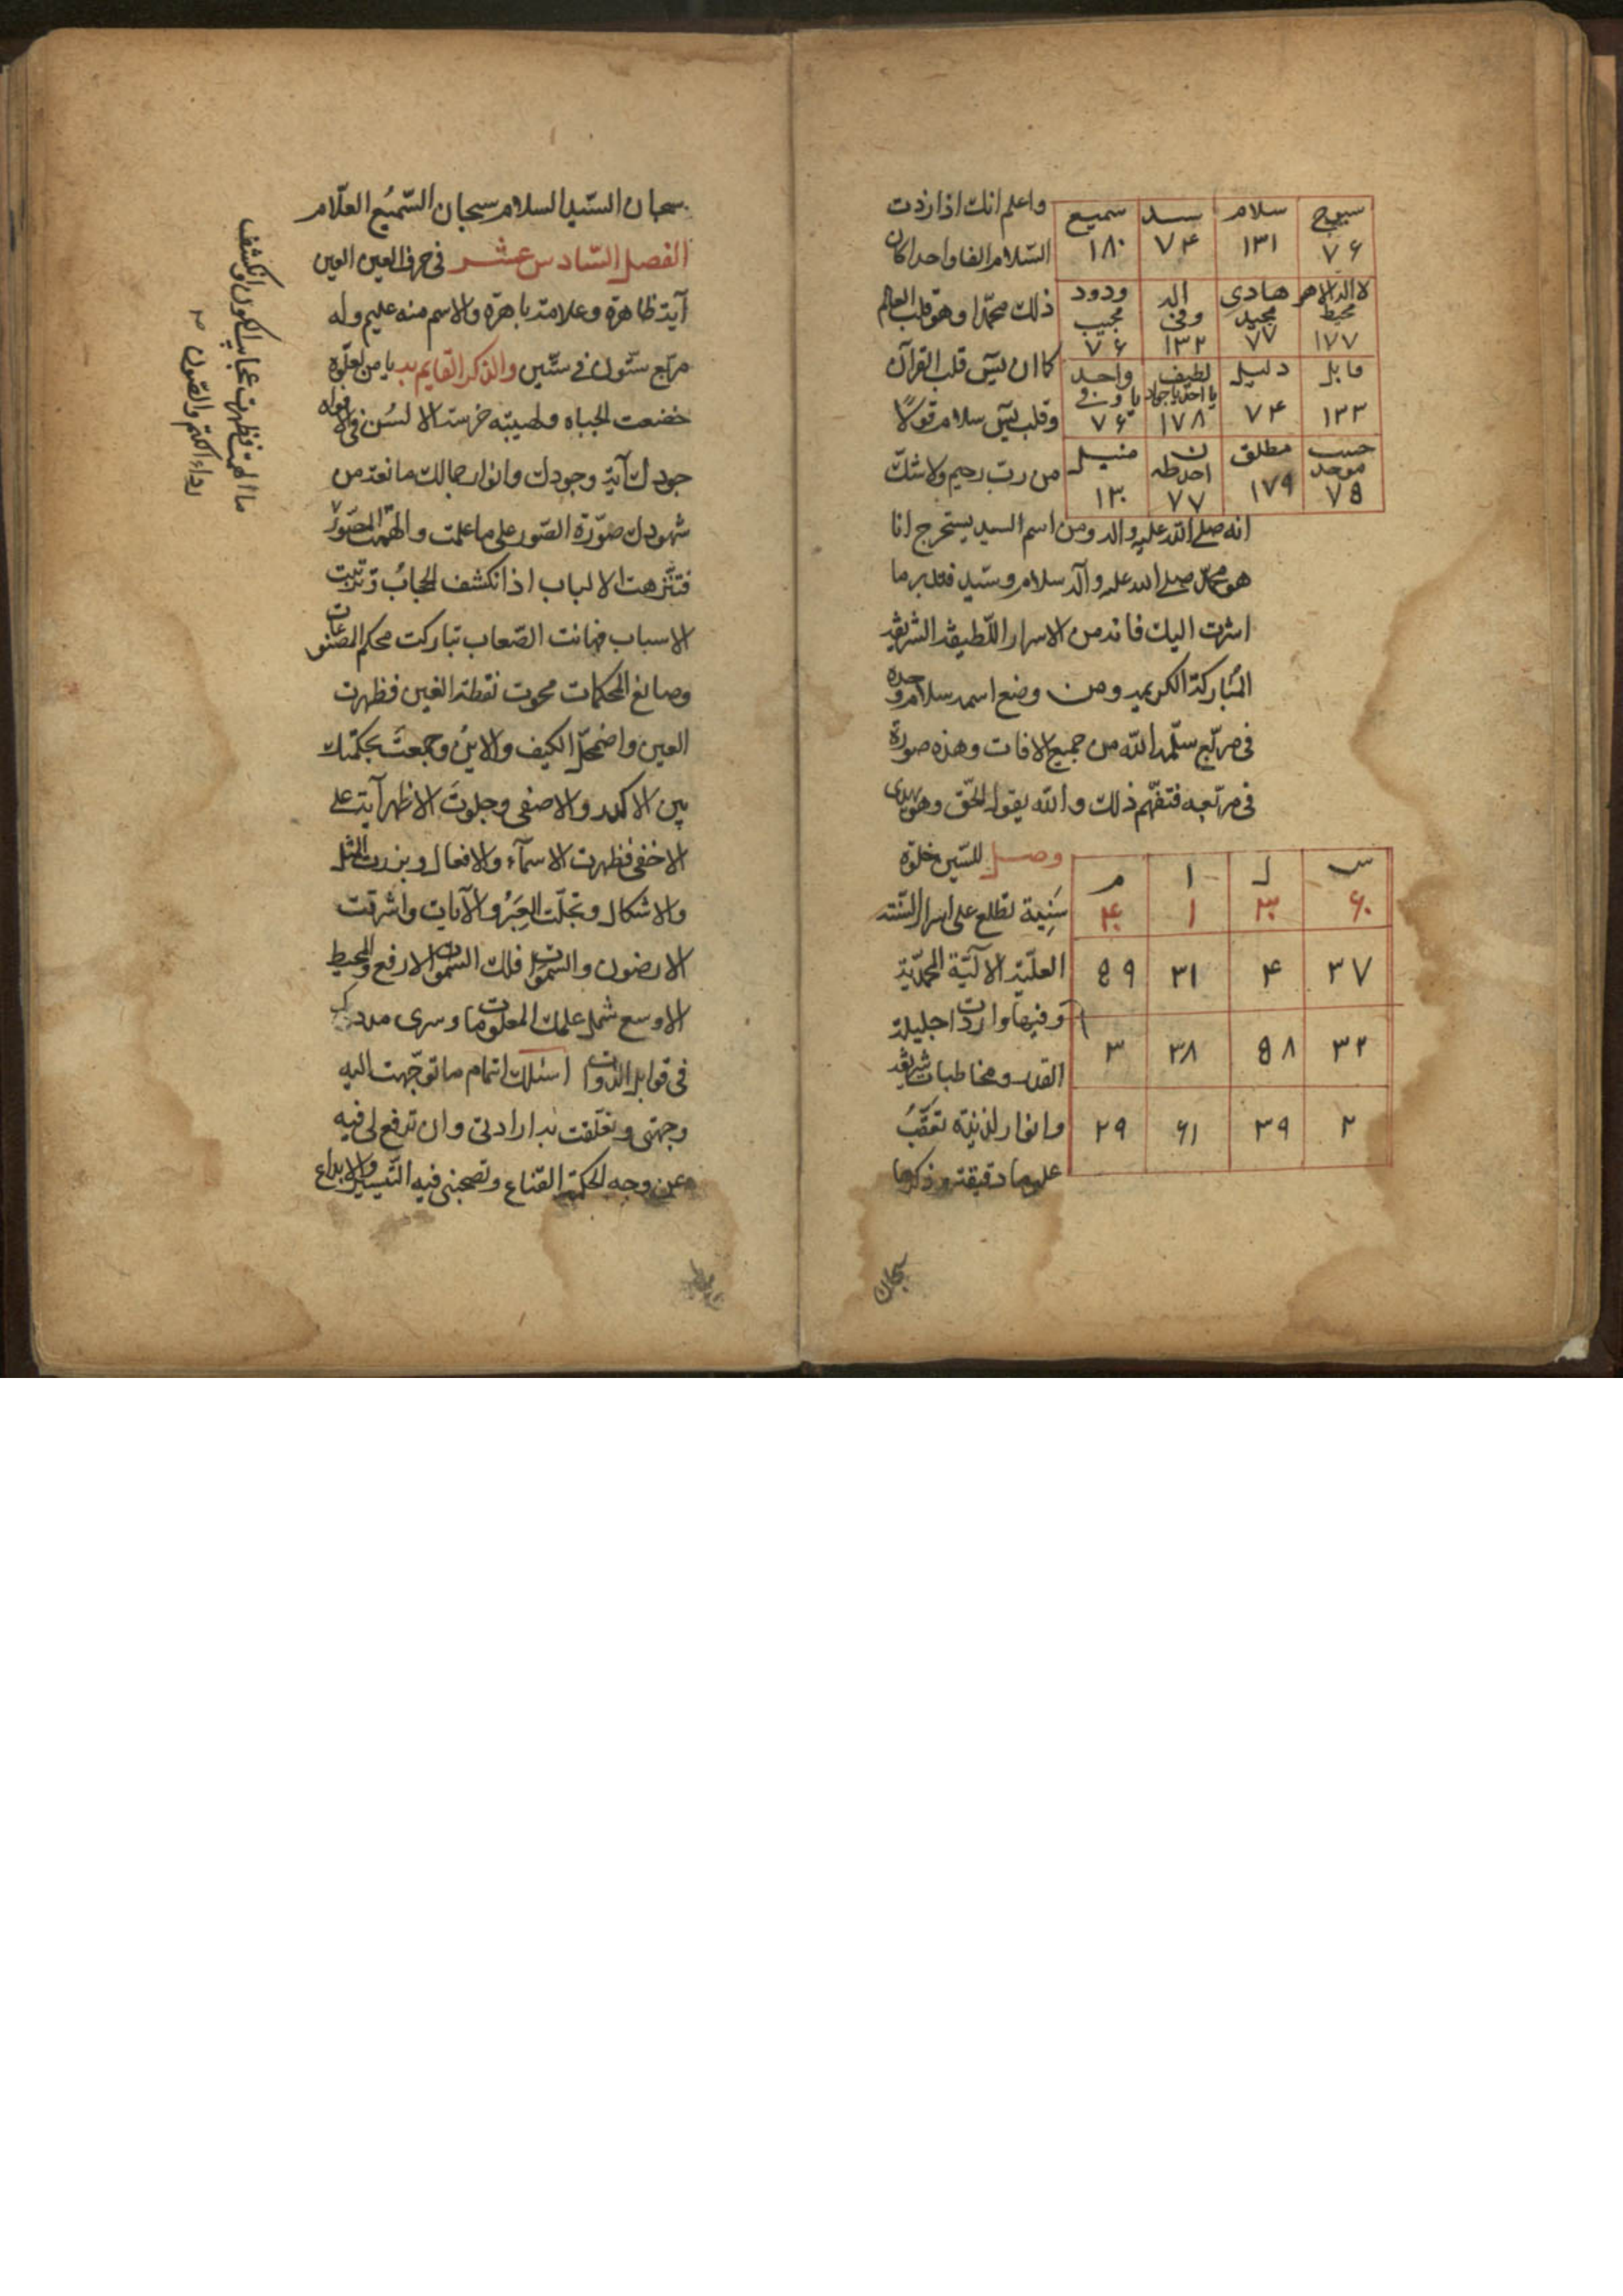 سبوح سلام سيد سميع
٧۶ ١٣١ ٧۴ ١٨٠
لا اله الا هو هادى اله ودود
محيط مجيد وفى مجيب
١٧٧ ٧٧ ١٣٢ ٧۶
قابل دليل لطيف واحد
١٣٣ ٧۴ ١٧٨ ٧۶
حسيب مطلق
موحد
٧۵ ١٧٩ ٧٧ ١٣٠
واعلم انك اذا زدت
السّلام الفا واحدا كان
ذلك محمّدا وهو قلب العالم
كما ان يسۤ قلب القرآن
وقلب يسۤ سلام قولًا
من رب رحيم ولا شكّ
انه صلى الله عليه واله ومن اسم السيد يستخرج انا
هو محمد صلى الله عليه وآله سلام وسيّد فتدبر ما
اشرت اليك فانه من الاسرار اللّطيفة الشريفة
المُباركة الكريمة ومن وضع اسمه سلام وحده
فى مربّع سلّمه الله من جميع الافات وهذه صورة
فى مربّعه فتفهّم ذلك والله يقول الحّق وهو يهدى
س ل ا م
۶٠ ٣٠ ١ ۴٠
٣٧ ۴ ٣١ ۵٩
٣٢ ۵٨ ٣٨ ٣
٢ ٣٩ ۶١ ٢٩
وصل للسّين خلوة
سَنِية تطلع على اسرار السّنة
العليّة الآليّة المحمّديّة
وفيها واردات جليلة
القدر ومخاطبات شريفة
وانوار لدنيّة تعقّبُ
عليها دقيقة وذكرها
سبحان
سبحان السّيد السلام سبحان السّميُع العلّام
الفصل السّادس عشر فى حرف العين العين
آية ظاهرة وعلامة باهرة والاسم منه عليم وله
مربّع ستّون فى ستّين والذكر القايم به يا من لعلّوه
خضعت الجباه ولهيبته خرست الالسُن فى الافواه
جودك آية وجودك وانوار جمالك مانعة من
شهودك صوّرة الصّور على ما علمت والهمت المصّور
فتنّزهت الالباب اذ انكشف الحجابُ وترتبت
الاسباب فهانت الصّعاب تباركت محكم المصّنوعات
وصانع المحكمات محوت نقطة الغين فظهرت
العين واضمحلّ الكيف والاينُ وجمعتَ بحكمتك
بين الاكدر والاصفى وجلوتَ الاظهر آية على
الاخفى فظهرت الاسمآء والافعال وبزرت المثل
والاشكال وتجلّت العِبَرُ والآيات واشرقت
الارضون والسّموات فلك السّموات الارفع والمحيط
الاوسع شمل علمك المعلومات وسرى مددك
فى قوابل الذّوات اسئلك اتمام ما توّجهت اليه
وجهتى وتعلّقت به ارادتى وان ترفع لى فيه
عن وجه الحكمة القناع وتصحبنى فيه التّيسير والابداع